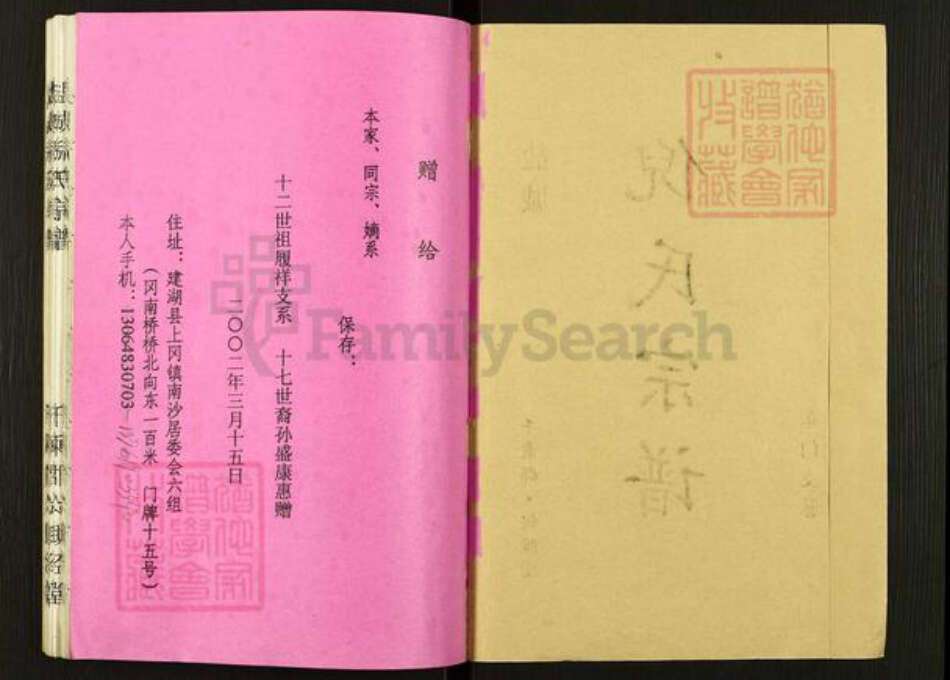 赠给
本家、同宗、嫡系
保存：
十二世祖履祥支系 十七世裔孙盛康惠赠
二〇〇二年三月十五日
住址：建湖县上冈镇南沙居委会六组
（冈南桥桥北向东一百米 门牌十五号）
本人手机：13064830703
倪氏宗谱
猶他家譜學會收藏
猶他家譜學會收藏
FamilySearch